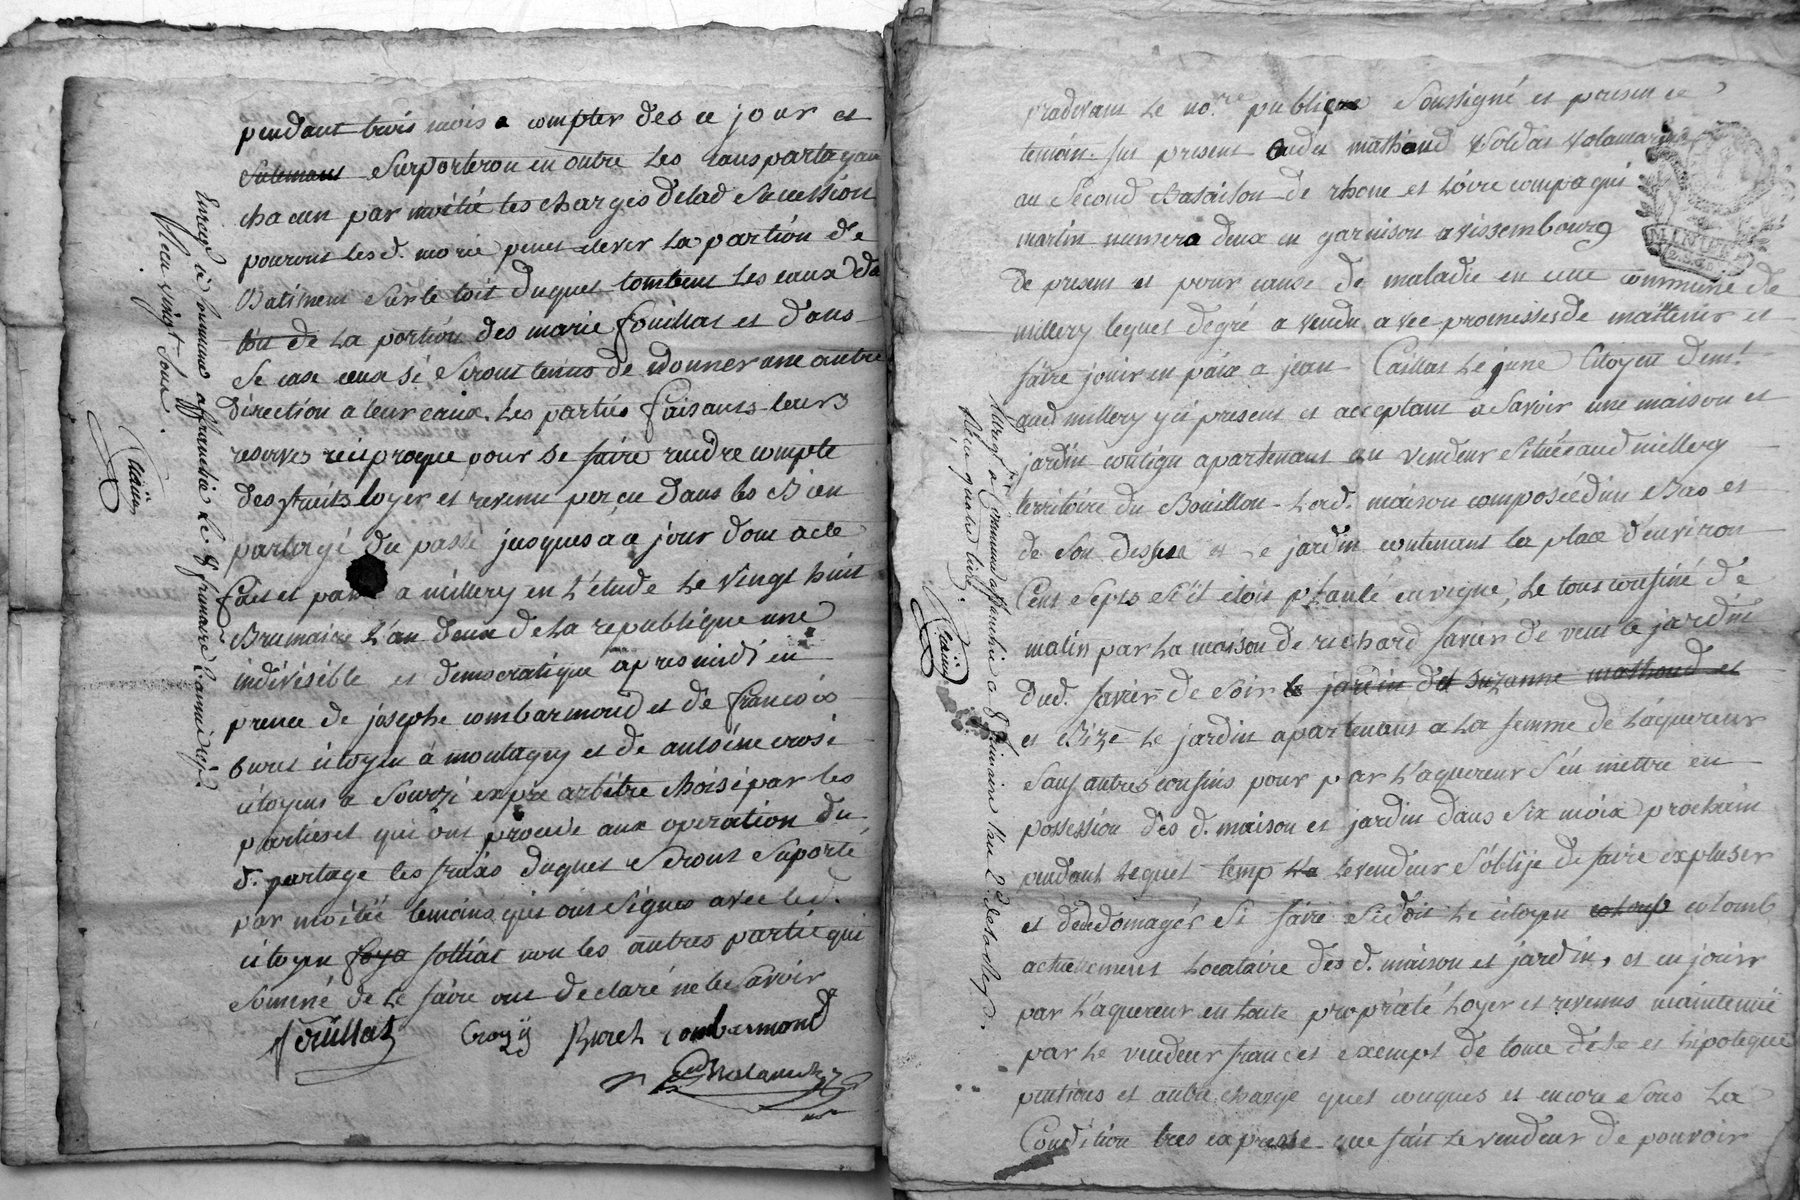 pendant trois mois a compter des ce jour et
sulement Surporteron en outre les
chacun par moitié les charges delad Succession
pouront lesd. marié la partion de
Batiment sur le toit duquel tombent les eaux du
toit de la portion des marié fouillat et dans
se cas ceux si seront tenus de donner une autre
direction a leur eaux. les partiés faisants leurs
reserves reciproque pour se faire rendre compte
des fruits loyer et revenu perçu dans les Bien
partagé du passé jusques a ce jour dont acte
fait et a millery en l'étude le vingt huit
Brumaire l'an deux de la republique une
indivisible et democratique apres midi en
prence de josephe combarmond et de francois
buret citoyen á montagny et de antoine crosi
citoyens a Sourzi expre arbitre choisi par les
parties et qui ont procedé aux operation du
d. partage les fraixs duquel seront suporté
par moitié temoins qui ont signés avec led.
citoyen foya follias non les autres partié qui
sommé de le faire ont declaré ne le savoir
Crozy Buret combarmond
Enregé à commune affranchie le 8 frimaire l'an
Reçu vingt sous.
pardevant le nore. publique soussigné et presence
temoin fut present mathoud soldat volontaire
au second Bataillon de rhone et loire compagni
martin numero deux en garnison a vissembourg
de present et pour cause de maladie en cette commune de
millery lequel de gré a vendu avec promesses de mäitenir et
faire jouir en päix a jean Caillat le june Citoyen demt.
aud millery y ci present et acceptant a savoir une maison et
jardin contigu apartenant au vendeur située aud millery
territoire du Bouillon lad. maison composée d'un Bas et
de son dessus et le jardin contenant la place d'environ
Cent seps s'il étoit planté en vigne, le tout confiné de
matin par la maison de richard favier de vent le jardin
dud. favier de soir le jardin de suzanne mathoud et
et Bize le jardin apartenant a la femme de l'aquereur
sauf autres confins pour par l'aquereur s'en mettre en
possession des d. maison et jardin dans six moix prochain
pendant lequel temp le vendeur s'oblije de faire expluser
et dédomager si faire se doit le citoyen colomb
actuellement locataire des d. maison et jardin, et en jouir
par l'aquereur en toute propriété loyer et revenus maintenu
par le vendeur franc et exempt de toute dette et hipoteque
pentions et autre charge quel conques et encore sous la
Condition tres expresse que fait le vendeur de pouvoir
Enregt. à Commune affranchie le 8 frimaire l'an 2e. de la Rep.
Reçu quatre livres.